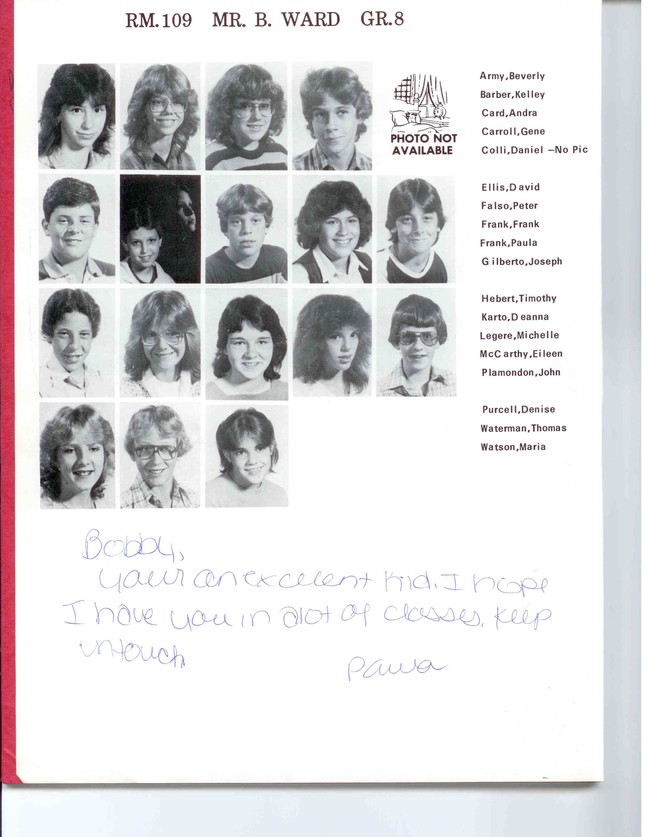 RM.109 MR. B. WARD GR.8
PHOTO NOT
AVAILABLE
Army,Beverly
Barber,Kelley
Card,Andra
Carroll,Gene
Colli,Daniel —No Pic
Ellis,David
Falso,Peter
Frank,Frank
Frank,Paula
Gilberto,Joseph
Hebert,Timothy
Karto,Deanna
Legere,Michelle
McCarthy,Eileen
Plamondon,John
Purcell,Denise
Waterman,Thomas
Watson,Maria
Bobby,
your an excelent kid. I hope
I have you in alot of classes. keep
in touch
Paula